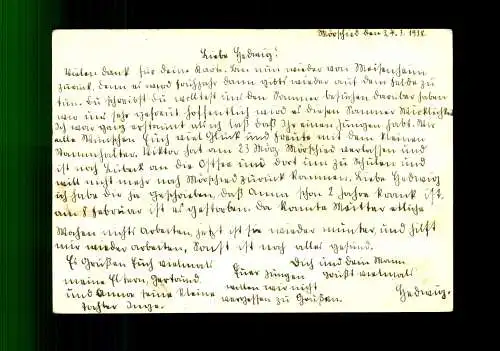 Mörschied den 24.3.1938
Liebe Hedwig!
Vielen dank für deine Karte. Bin nun wieder von Meisenheim
zurück, denn es wird frühjahr dann gibts wieder auf dem felde zu
tun. Du schreibst du wolltest uns den Sommer besuchen darüber haben
wir uns sehr gefreut hoffentlich wird es diesen Sommer Wirklichkeit
Ich war ganz erstaunt als ich laß daß Ihr einen Jungen habt. Wir
alle Wünschen Euch viel Glück und freute mit dem kleinen
Stammhalter. Viktor hat am 23 März Mörschied verlassen und
ist nach Lübeck an die Ostsee und dort um zu Schulen und
will nicht mehr nach Mörschied zurück kommen. Liebe Hedwig
ich habe dir ja geschrieben, daß Anna schon 2 Jahre krank ist.
am 8 februar ist es gestorben. Da konnte Mutter etliche
Wochen nichts arbeiten, jetzt ist sie wieder munter, und hilft
mir wieder arbeiten, Sonst ist noch alles gesund.
Es Grüßen Euch vielmals
meine Eltern, Gertrud
und Anna seine kleine
tochter Inge.
Dich und dein Mann
Euer Jungen grüßt vielmals
wollen wir nicht
vergessen zu Grüßen.
Hedwig.